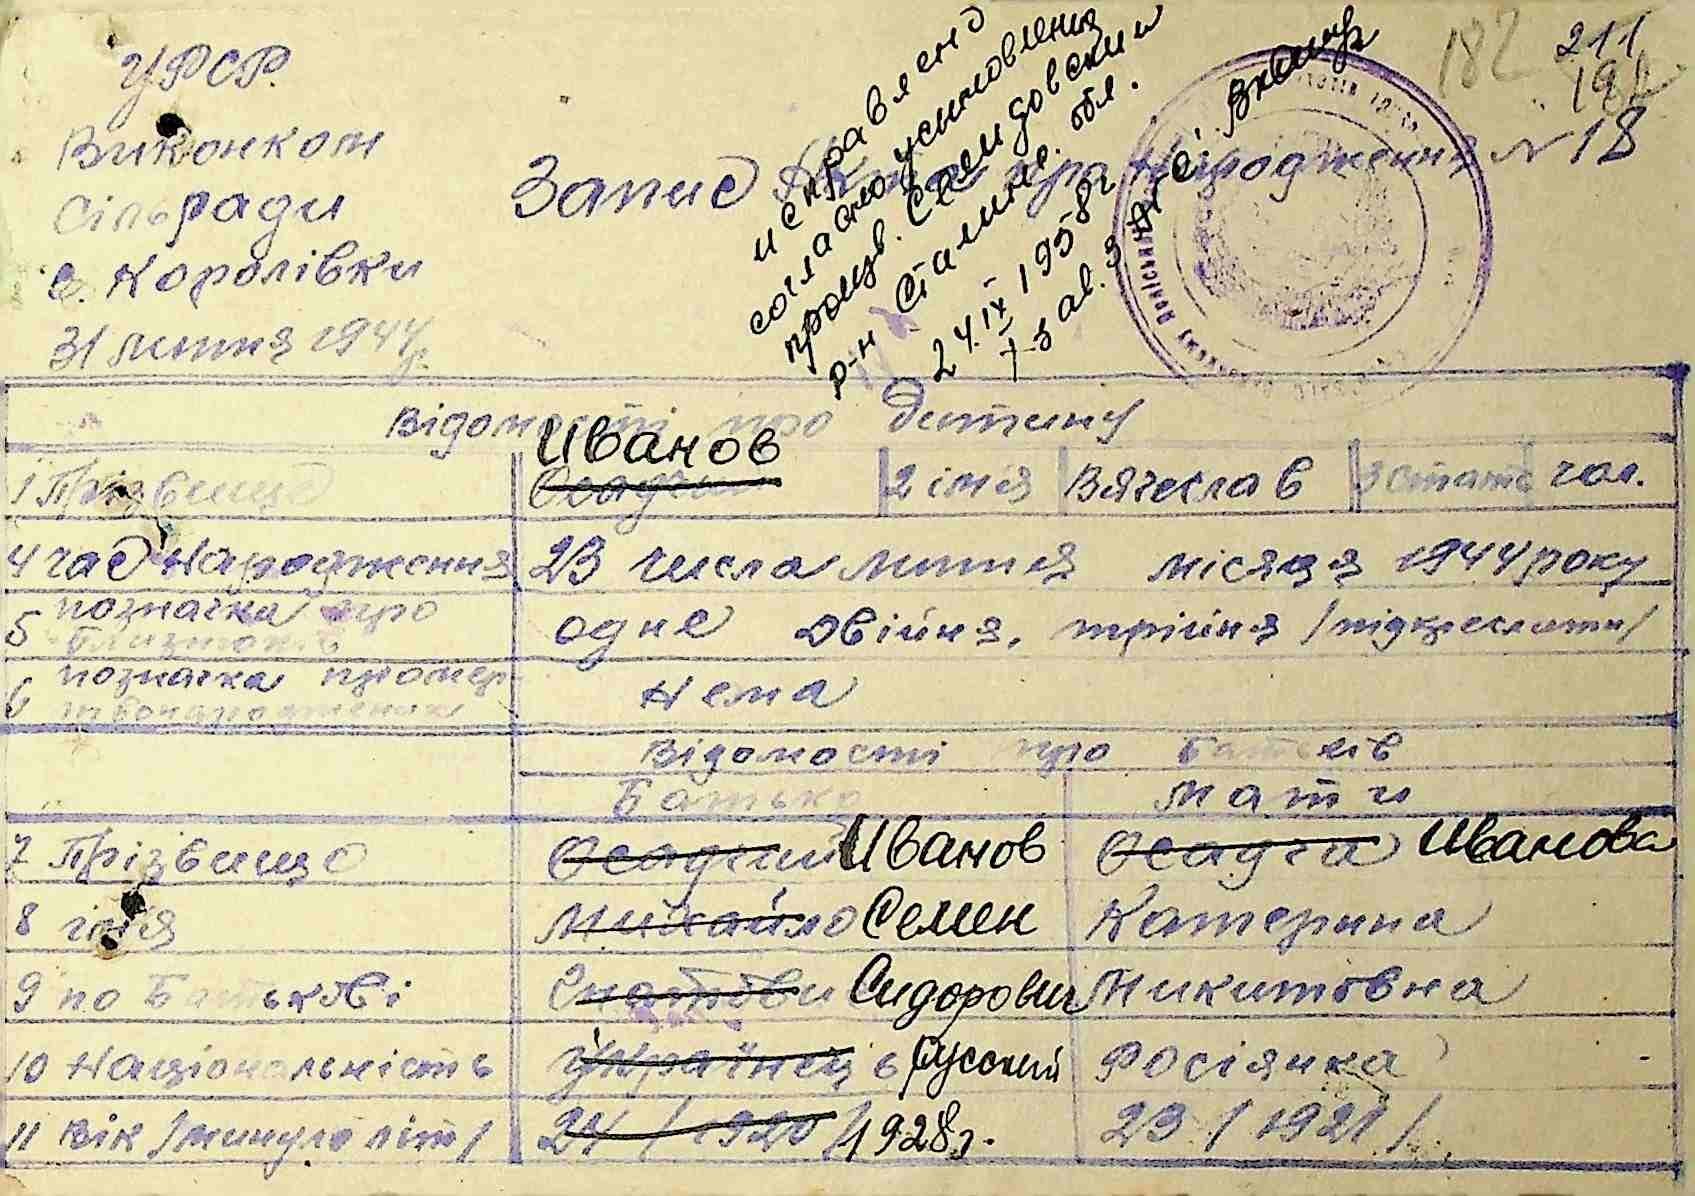 211
182
192
УРСР.
Виконком
Сільради
с. Королівки
31 липня 1944 р.
Запис Акта про Народження № 18
исправлено
согласно усыновления
произв. Селидовским
р-н Сталинс. обл.
24.IX 1958 г.
Зав. ЗАГСі.
Відомості про дитину
1 Прізвище Осадчий Иванов 2 імія Вячеслав 3 стать чол.
4 час Народження 23 числа липня місяця 1944 року
5 позначка про близнюків одне двійня, трійня /підкреслити/
6 позначка про мертвонародження Нема
Відомості про Батьків
Батько Мати
7 Прізвище Осадчий Иванов Осадча Иванова
8 імія Михайло Семен Катерина
9 по Батькові Сидорович Микитовна
10 Національність Українець русский Росіянка
11 вік /минуло літ/ 24 /1920/ 1928 г. 23 /1921/.